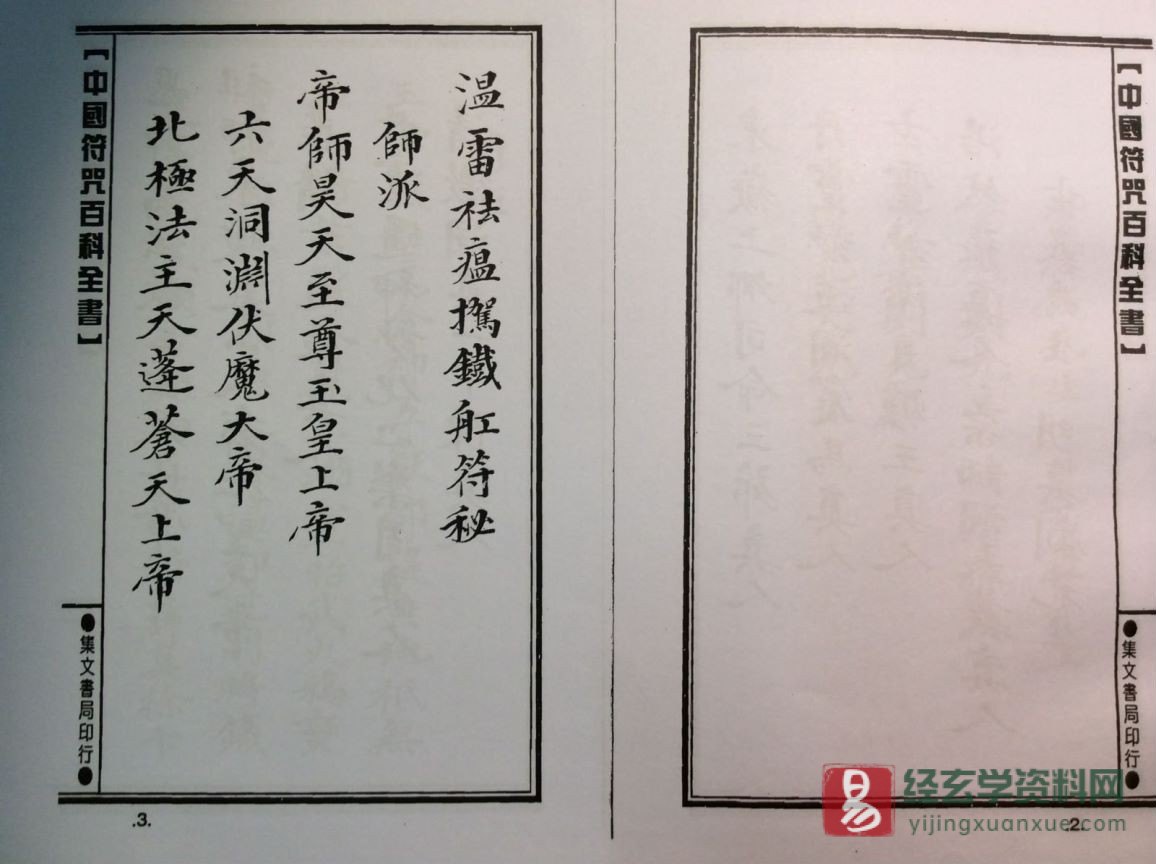 【中國符咒百科全書】
●集文書局印行●
.2.
溫雷祛瘟攜鐵舡符秘
師派
帝師昊天至尊玉皇上帝
六天洞淵伏魔大帝
北極法主天蓬蒼天上帝
【中國符咒百科全書】
●集文書局印行●
.3.
易
经玄学资料网
yijingxuanxue.com